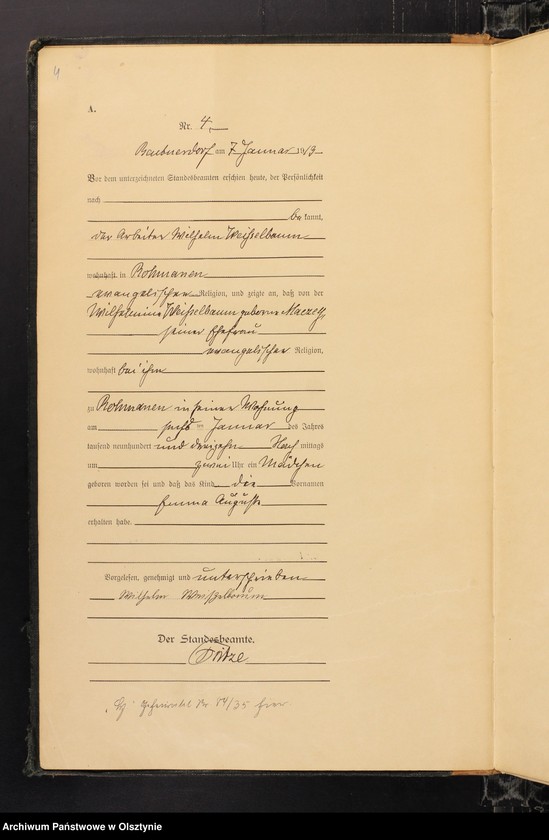 4
A.
Nr. 4.
Beutnerdorf am 7. Januar 1913
Vor dem unterzeichneten Standesbeamten erschien heute, der Persönlichkeit
nach
bekannt,
der Arbeiter Wilhelm Weißelbaum
wohnhaft in Rohmanen
evangelischer Religion, und zeigte an, daß von der
Wilhelmine Weißelbaum geborene
seiner Ehefrau
evangelischer Religion,
wohnhaft bei ihm
zu Rohmanen in seiner Wohnung
am sechs ten Januar des Jahres
tausend neunhundert und dreizehn Nach mittags
um zwei Uhr ein Mädchen
geboren worden sei und daß das Kind die Vornamen
Emma Auguste
erhalten habe.
Vorgelesen, genehmigt und unterschrieben
Wilhelm Weißelbaum
Der Standesbeamte.
Nr 14/35 hier.
Archiwum Państwowe w Olsztynie